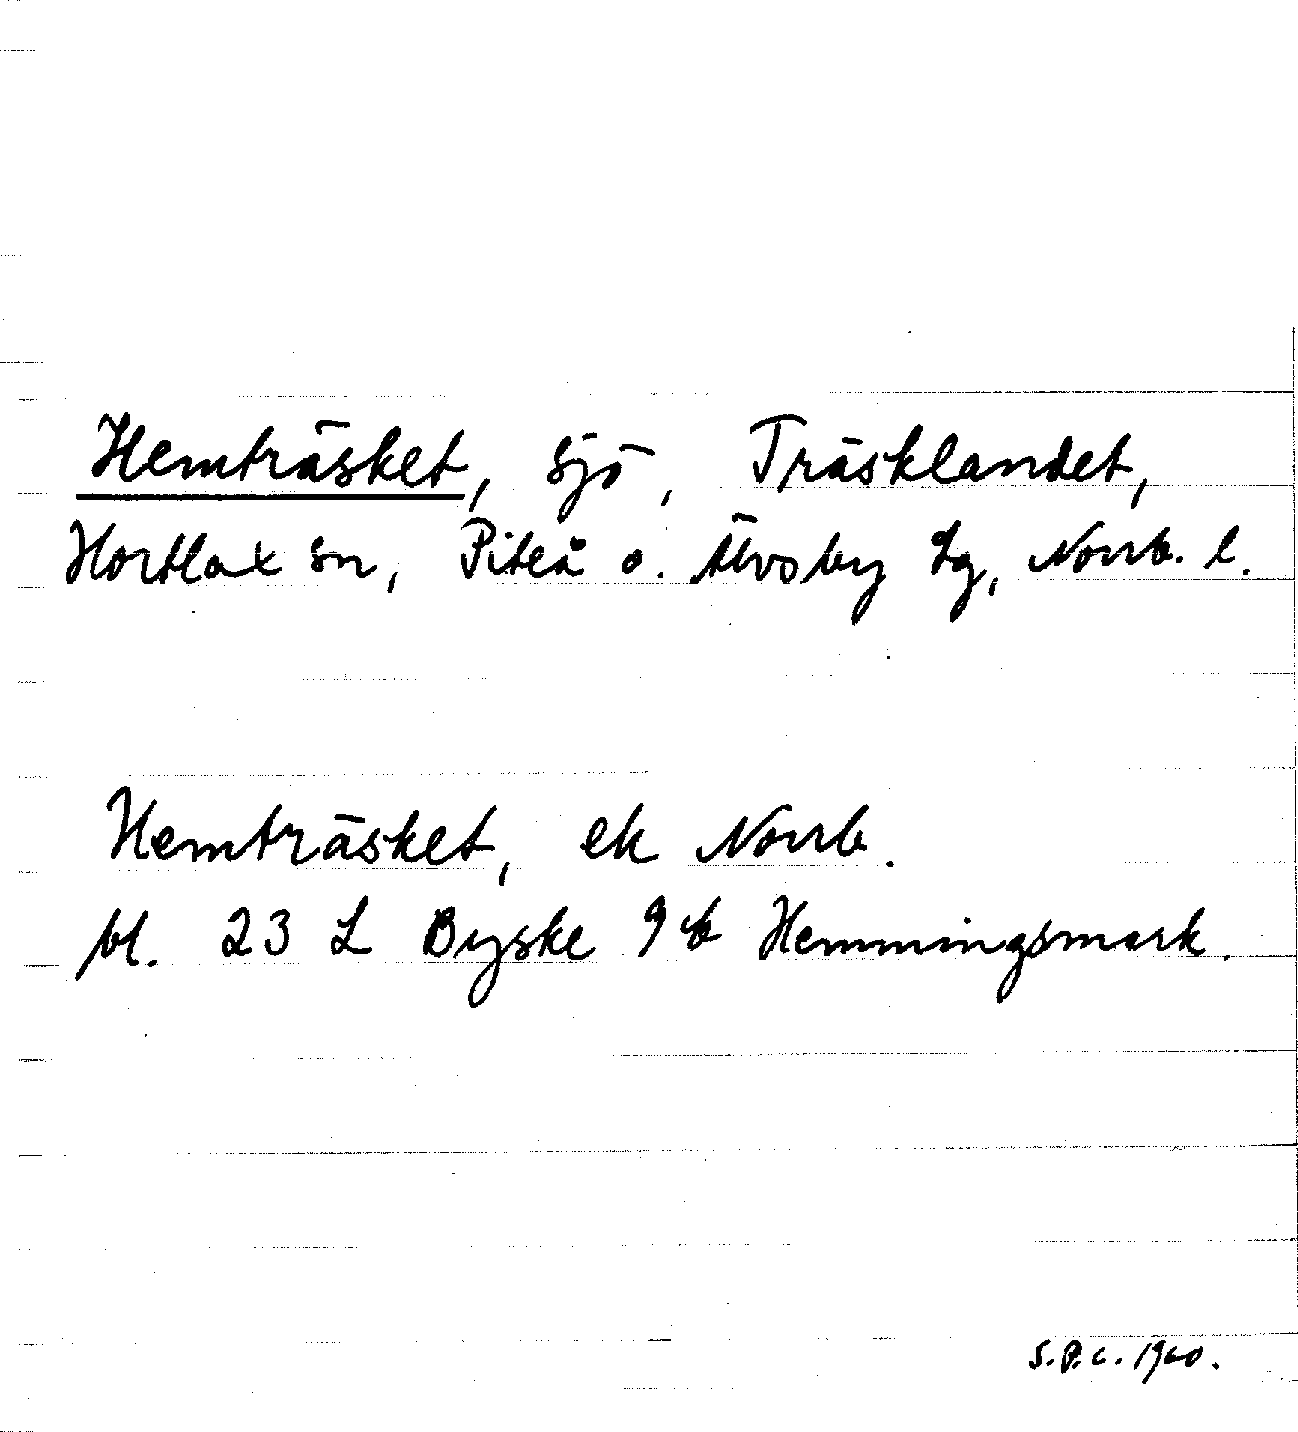 Hemträsket, sjö, Träsklandet,
Hortlax sn, Piteå o. Älvsby tg, Norrb. l.
Hemträsket, ek Norrb.
bl. 23 L Byske 9 b Hemmingsmark.
S.P.C. 1960.